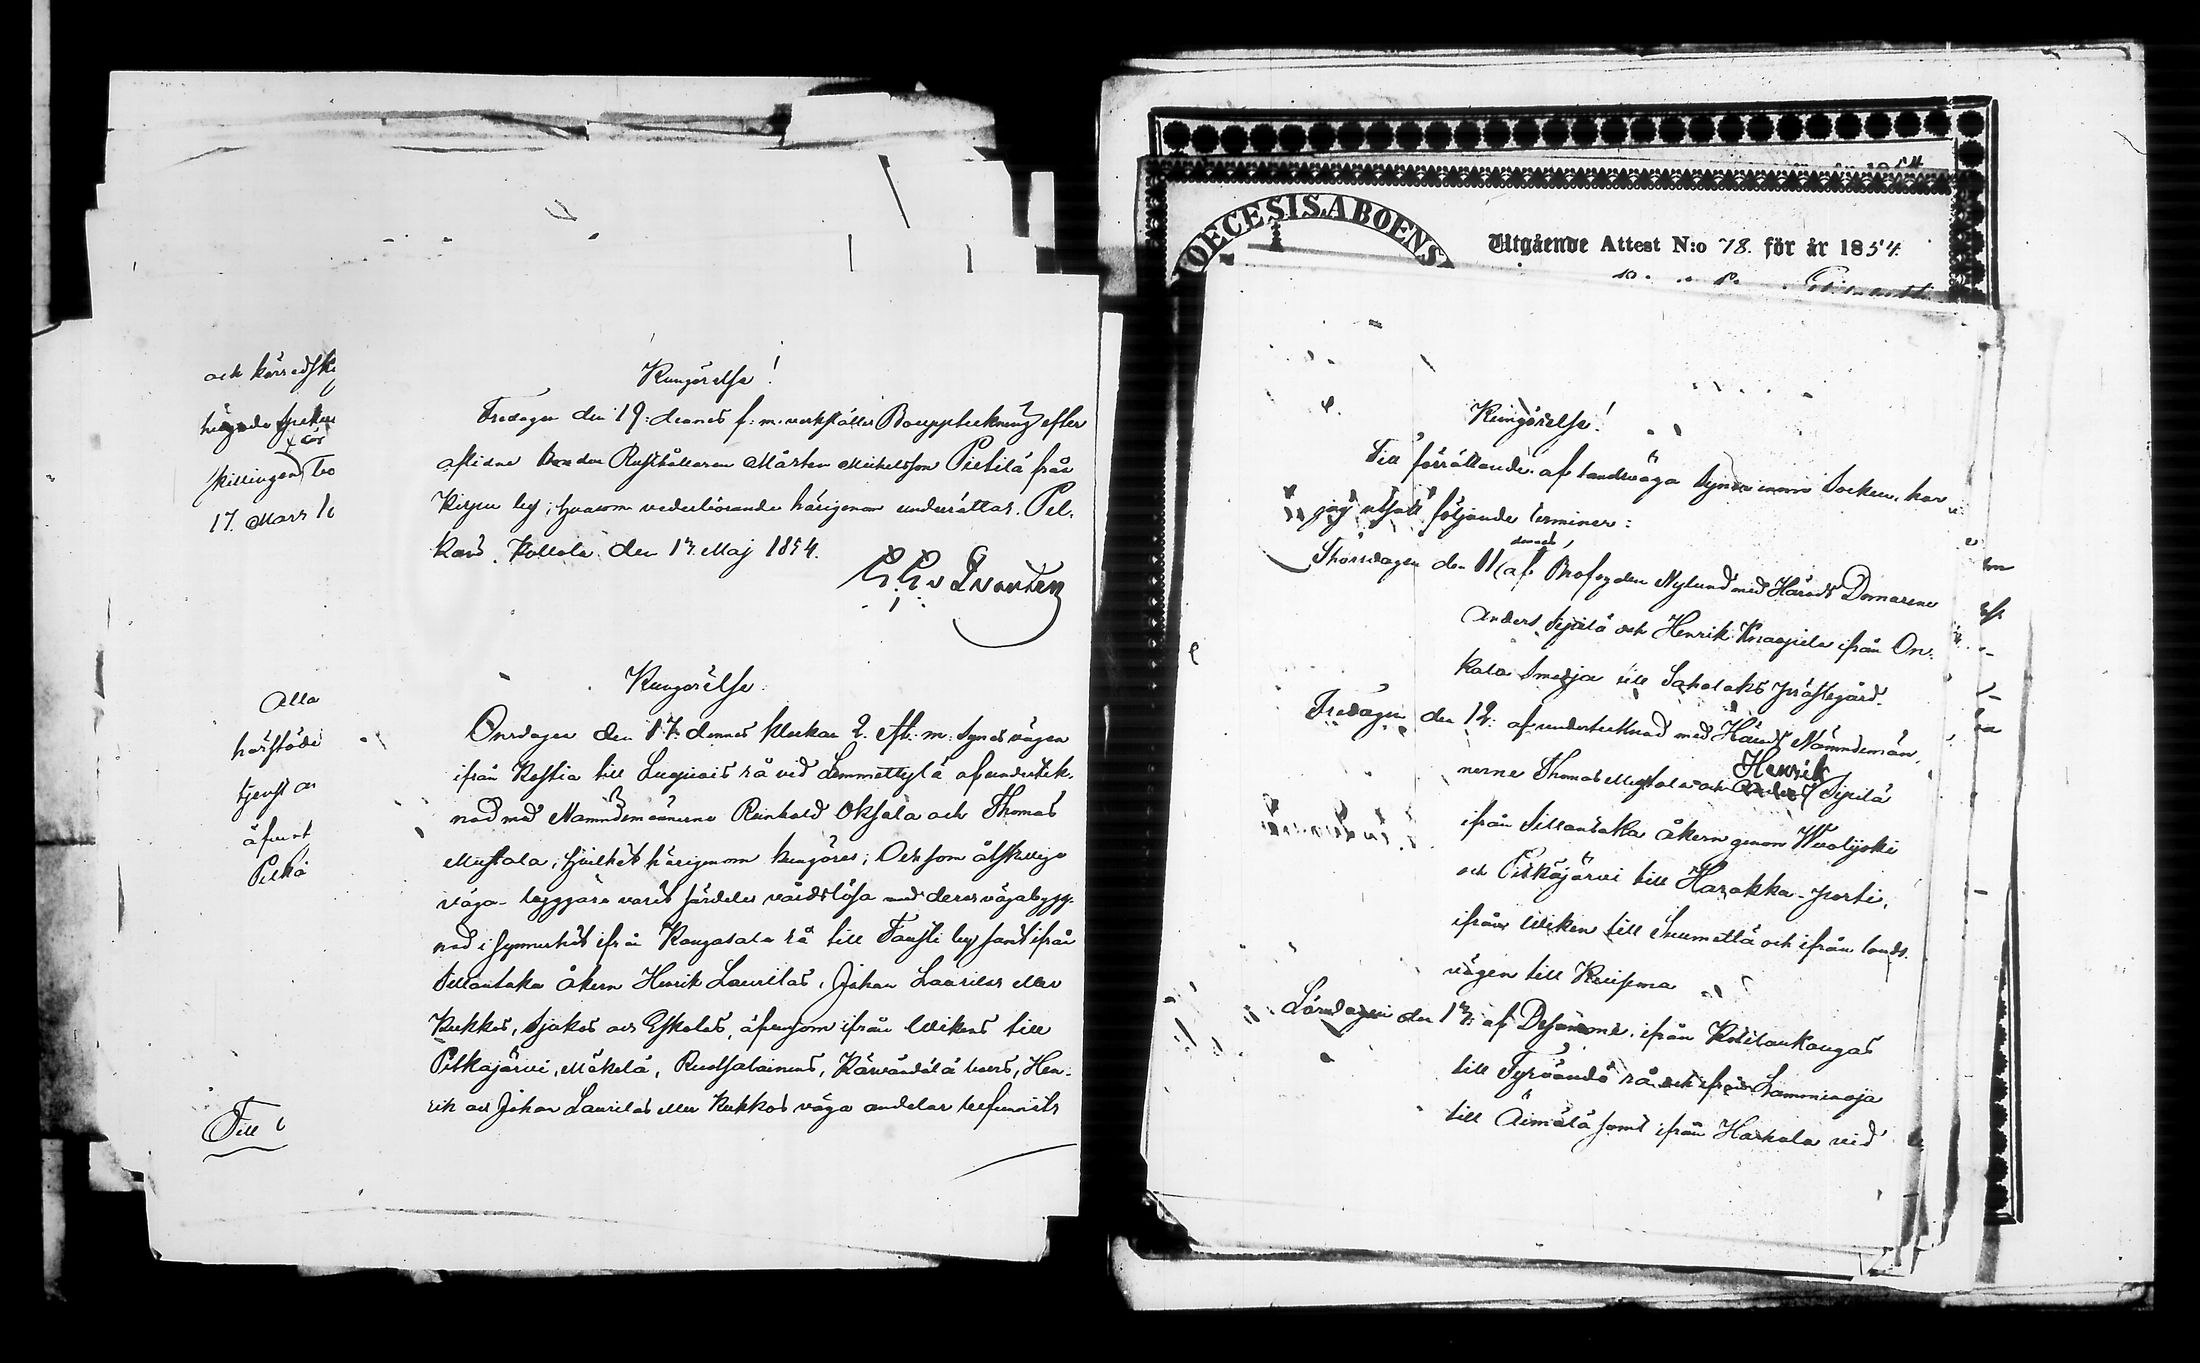 och körredsk
högade
skillingen
17. Mars
Alla
härstäde
tjenst
äfvent
Pelkä
Till
Kungörelse!
Fredagen den 19: dennes f: m: verkställes Bouppteckning efter
aflidne Bonden Rusthållaren Mårten Michelsson Pietilä från
by; hvarom vederbörande härigenom underrättas. Pel-
käne Kollola den 13 Maj 1854.
Kungörelse:
Onsdagen den 17. dennes klockan 2. eft. m: synes vägen
ifrån Kostia till rå vid Lemmettylä af underteck-
nad med Nämndemännerne Reinhold Oksala och Thomas
Mustala, hvilket härigenom kungöres; Och som åtskillige
väga- byggare varit särdeles vårdslösa med deras vägabygg-
nad i synnerhet ifrån Kangasala rå till Tausti by samt ifrån
Sillantaka åkern Henrik Laurilas, Johan Laurilas eller
Kukkos, Sjukos och Eskolas, äfvensom ifrån Wikens till
Pitkäjärvi, Mäkelä, Ruotsalainens, Hen-
rik och Johan Laurilas eller Kukkos väga andelar befunnits
DIOECESIS ABOENS
Utgående Attest N:o 78. för år 1854.
Kungörelse!
Till förrättande af landtväga syner inom Socken, har
jag utsatt följande terminer:
dennes
Thorsdagen den 11 af Brofogden Nylund med Härads Domarene
Anders Sipilä och Henrik ifrån On-
kala Smedja till Sahalaks prästegård.
Fredagen den 12: af undertecknad med Härads Nämndemän-
Henrik
nerne Thomas Mustala och Sipilä
ifrån Sillantaka åkern genom Wuolijoki
och Pitkäjärvi till Harakka-porti,
ifrån Wiken till och ifrån lands-
vägen till Kuisema
Lördagen den 13: af Desamme, ifrån
till Tyrvändö rå och ifrån Lamminoja
till Äimälä samt ifrån Harhala vid